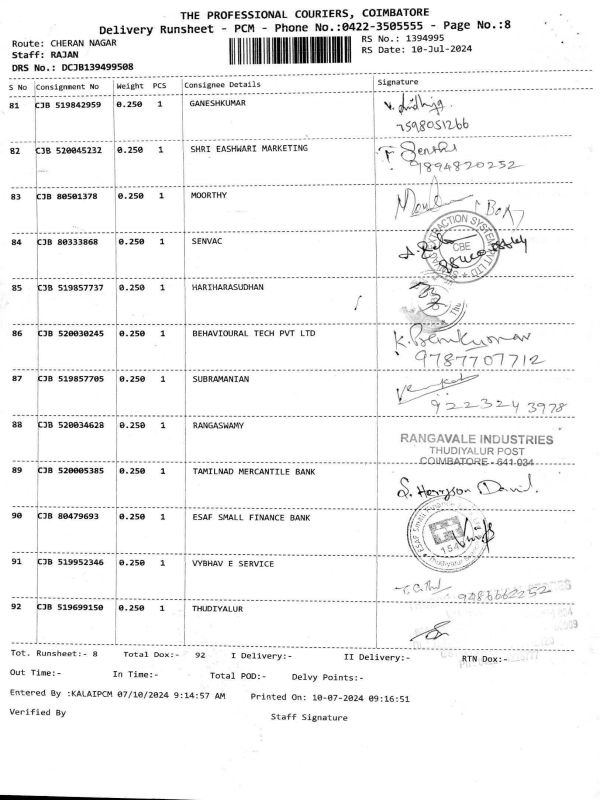 THE PROFESSIONAL COURIERS, COIMBATORE
Delivery Runsheet - PCM - Phone No.:0422-3505555 - Page No.:8
Route: CHERAN NAGAR
RS No.: 1394995
Staff: RAJAN
RS Date: 10-Jul-2024
DRS No.: DCJB139499508
S No Consignment No Weight PCS Consignee Details Signature
81 CJB 519842959 0.250 1 GANESHKUMAR
7598051266
82 CJB 520045232 0.250 1 SHRI EASHWARI MARKETING
9894820252
83 CJB 80501378 0.250 1 MOORTHY
84 CJB 80333868 0.250 1 SENVAC
CBE
85 CJB 519857737 0.250 1 HARIHARASUDHAN
86 CJB 520030245 0.250 1 BEHAVIOURAL TECH PVT LTD
9787707712
87 CJB 519857705 0.250 1 SUBRAMANIAN
9223243978
88 CJB 520034628 0.250 1 RANGASWAMY
RANGAVALE INDUSTRIES
THUDIYALUR POST
COIMBATORE - 641 034
89 CJB 520005385 0.250 1 TAMILNAD MERCANTILE BANK
90 CJB 80479693 0.250 1 ESAF SMALL FINANCE BANK
91 CJB 519952346 0.250 1 VYBHAV E SERVICE
9486662252
92 CJB 519699150 0.250 1 THUDIYALUR
Tot. Runsheet:- 8 Total Dox:- 92 I Delivery:- II Delivery:- RTN Dox:-
Out Time:- In Time:- Total POD:- Delvy Points:-
Entered By :KALAIPCM 07/10/2024 9:14:57 AM Printed On: 10-07-2024 09:16:51
Verified By
Staff Signature